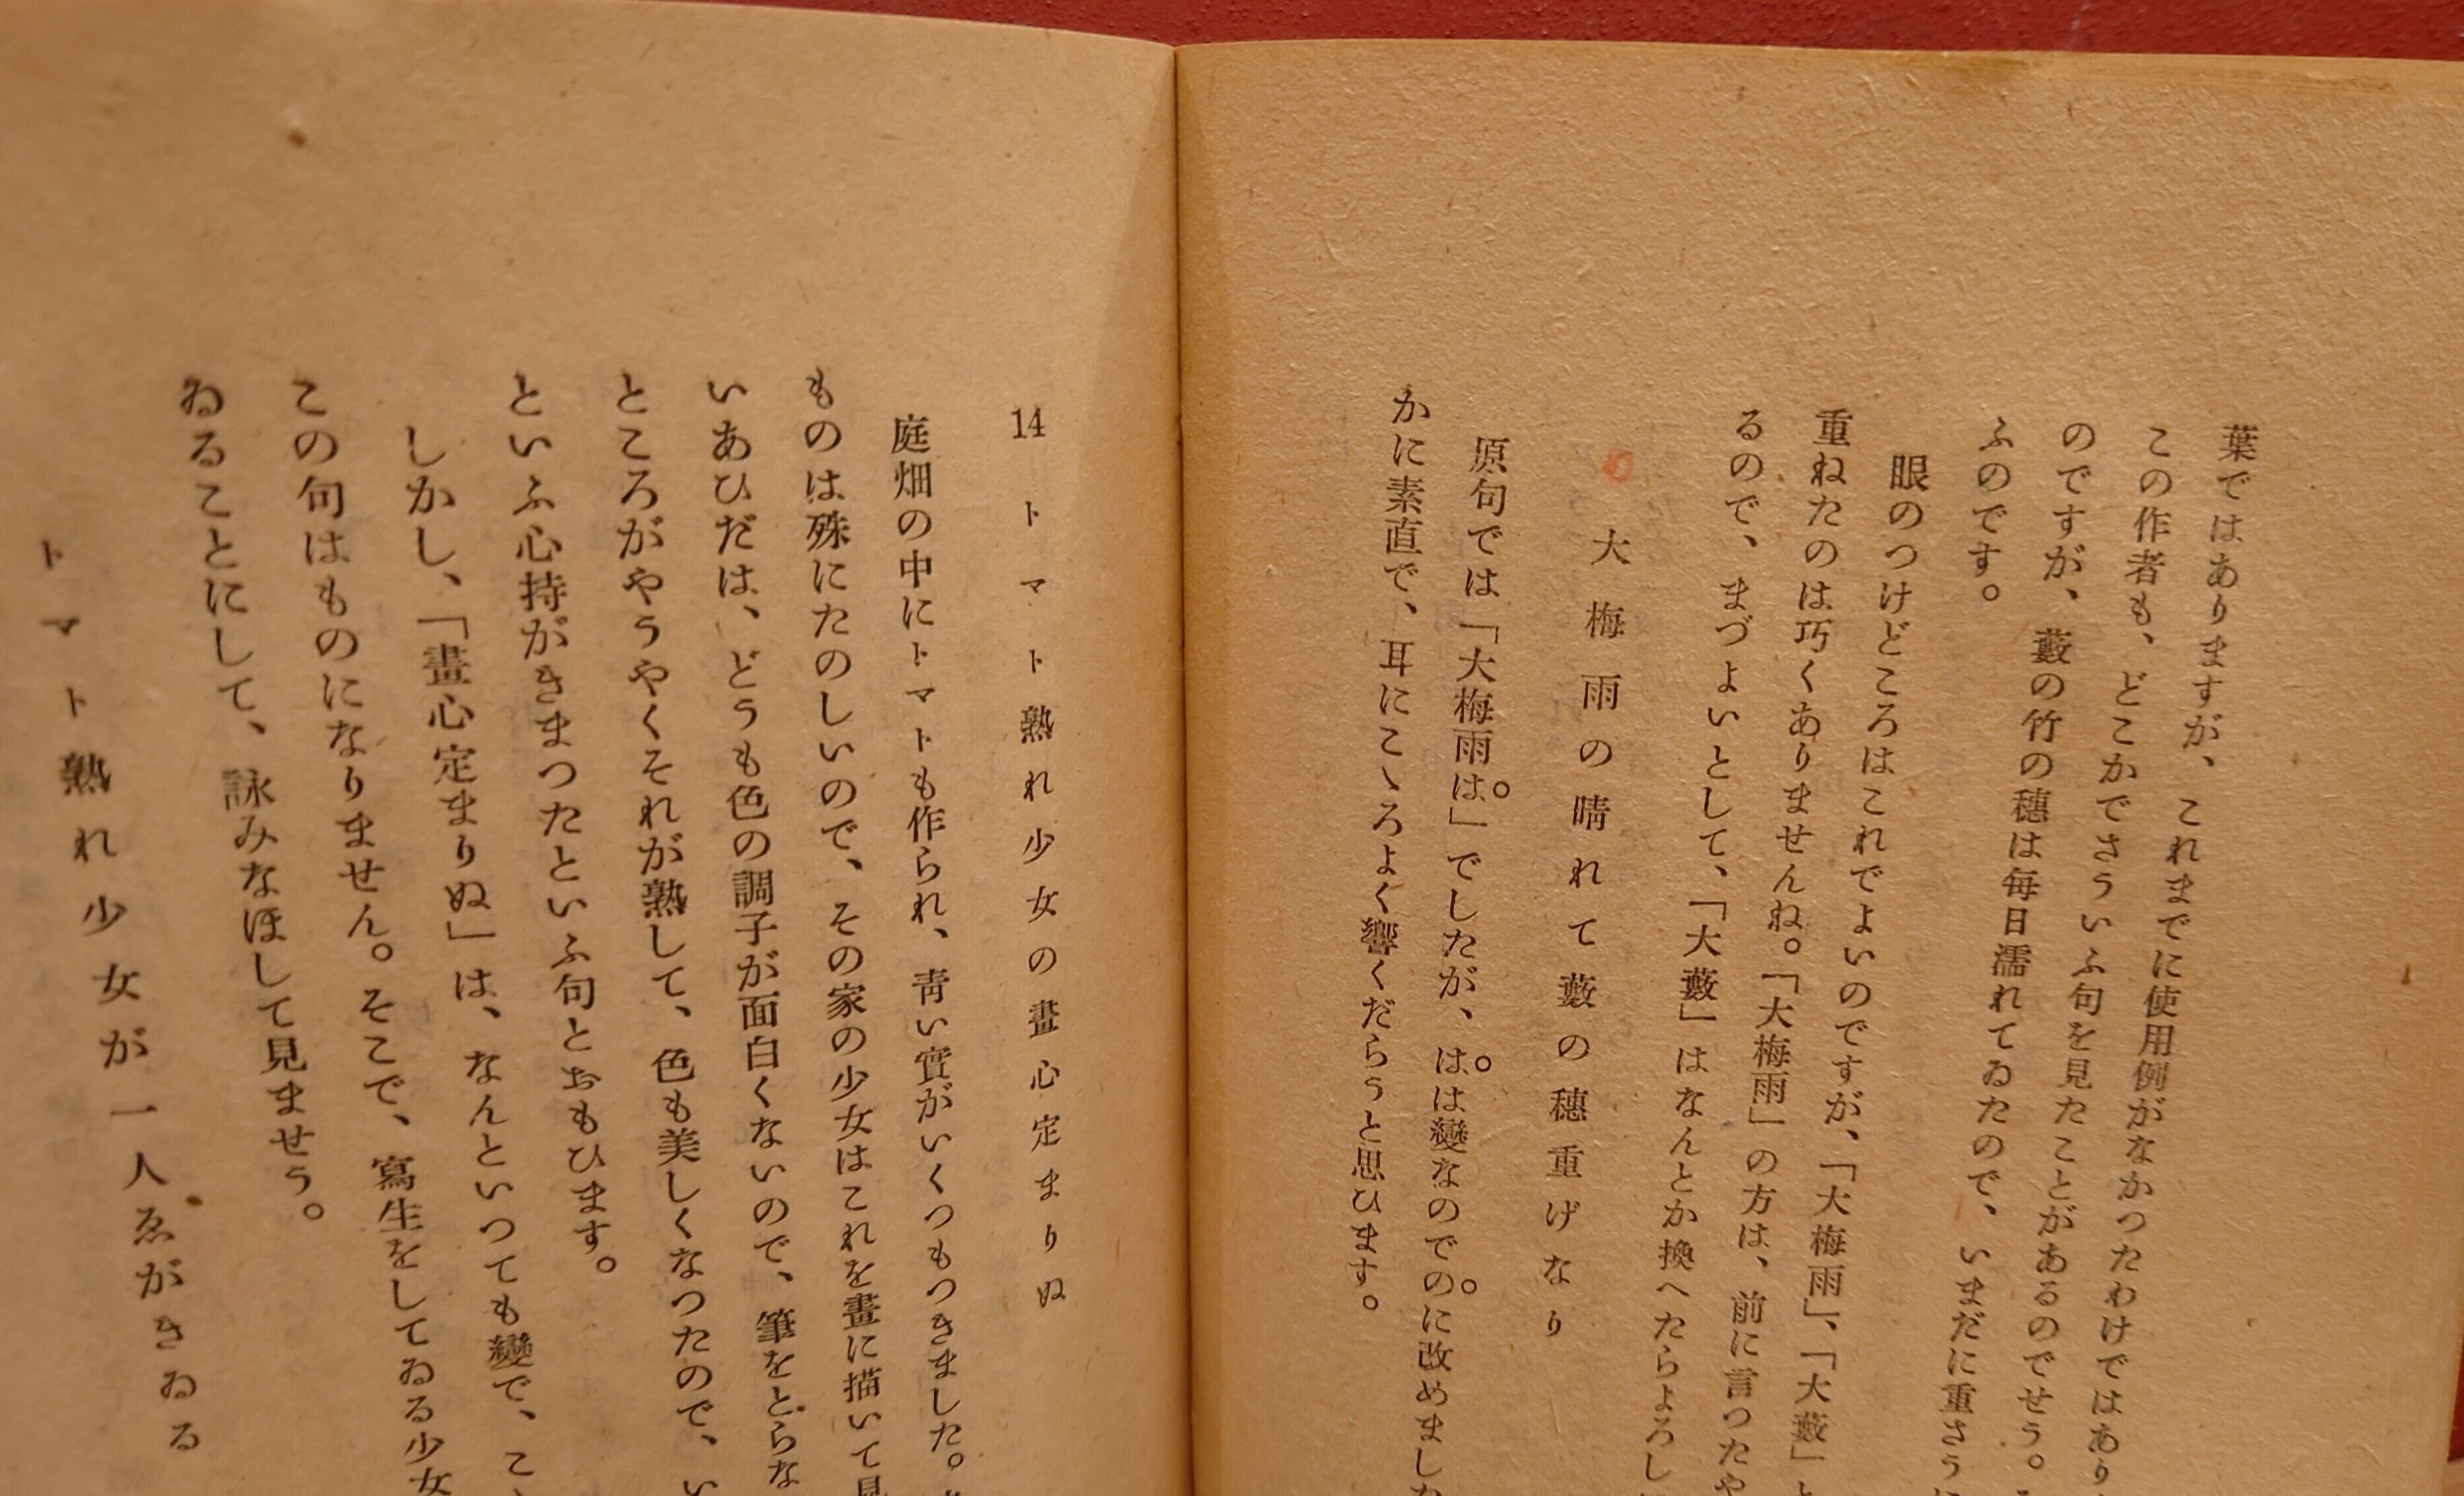 葉ではありますが、これまでに使用例がなかつたわけではあり
この作者も、どこかでさういふ句を見たことがあるのでせう。
のですが、藪の竹の穗は毎日濡れてゐたので、いまだに重さう
ふのです。
眼のつけどころはこれでよいのですが、「大梅雨」、「大藪」と
重ねたのは巧くありませんね。「大梅雨」の方は、前に言つたや
るので、まづよいとして、「大藪」はなんとか換へたらよろし
大梅雨の晴れて藪の穗重げなり
原句では「大梅雨は」でしたが、はは變なのでのに改めました
かに素直で、耳にこゝろよく響くだらうと思ひます。
14 トマト熟れ少女の畫心定まりぬ
庭畑の中にトマトも作られ、靑い實がいくつもつきました。
ものは殊にたのしいので、その家の少女はこれを畫に描いて見
いあひだは、どうも色の調子が面白くないので、筆をとらな
ところがやうやくそれが熟して、色も美しくなつたので、い
といふ心持がきまつたといふ句とおもひます。
しかし、「畫心定まりぬ」は、なんといつても變で、こ
この句はものになりません。そこで、寫生をしてゐる少女
ゐることにして、詠みなほして見ませう。
トマト熟れ少女が一人ゑがきゐる